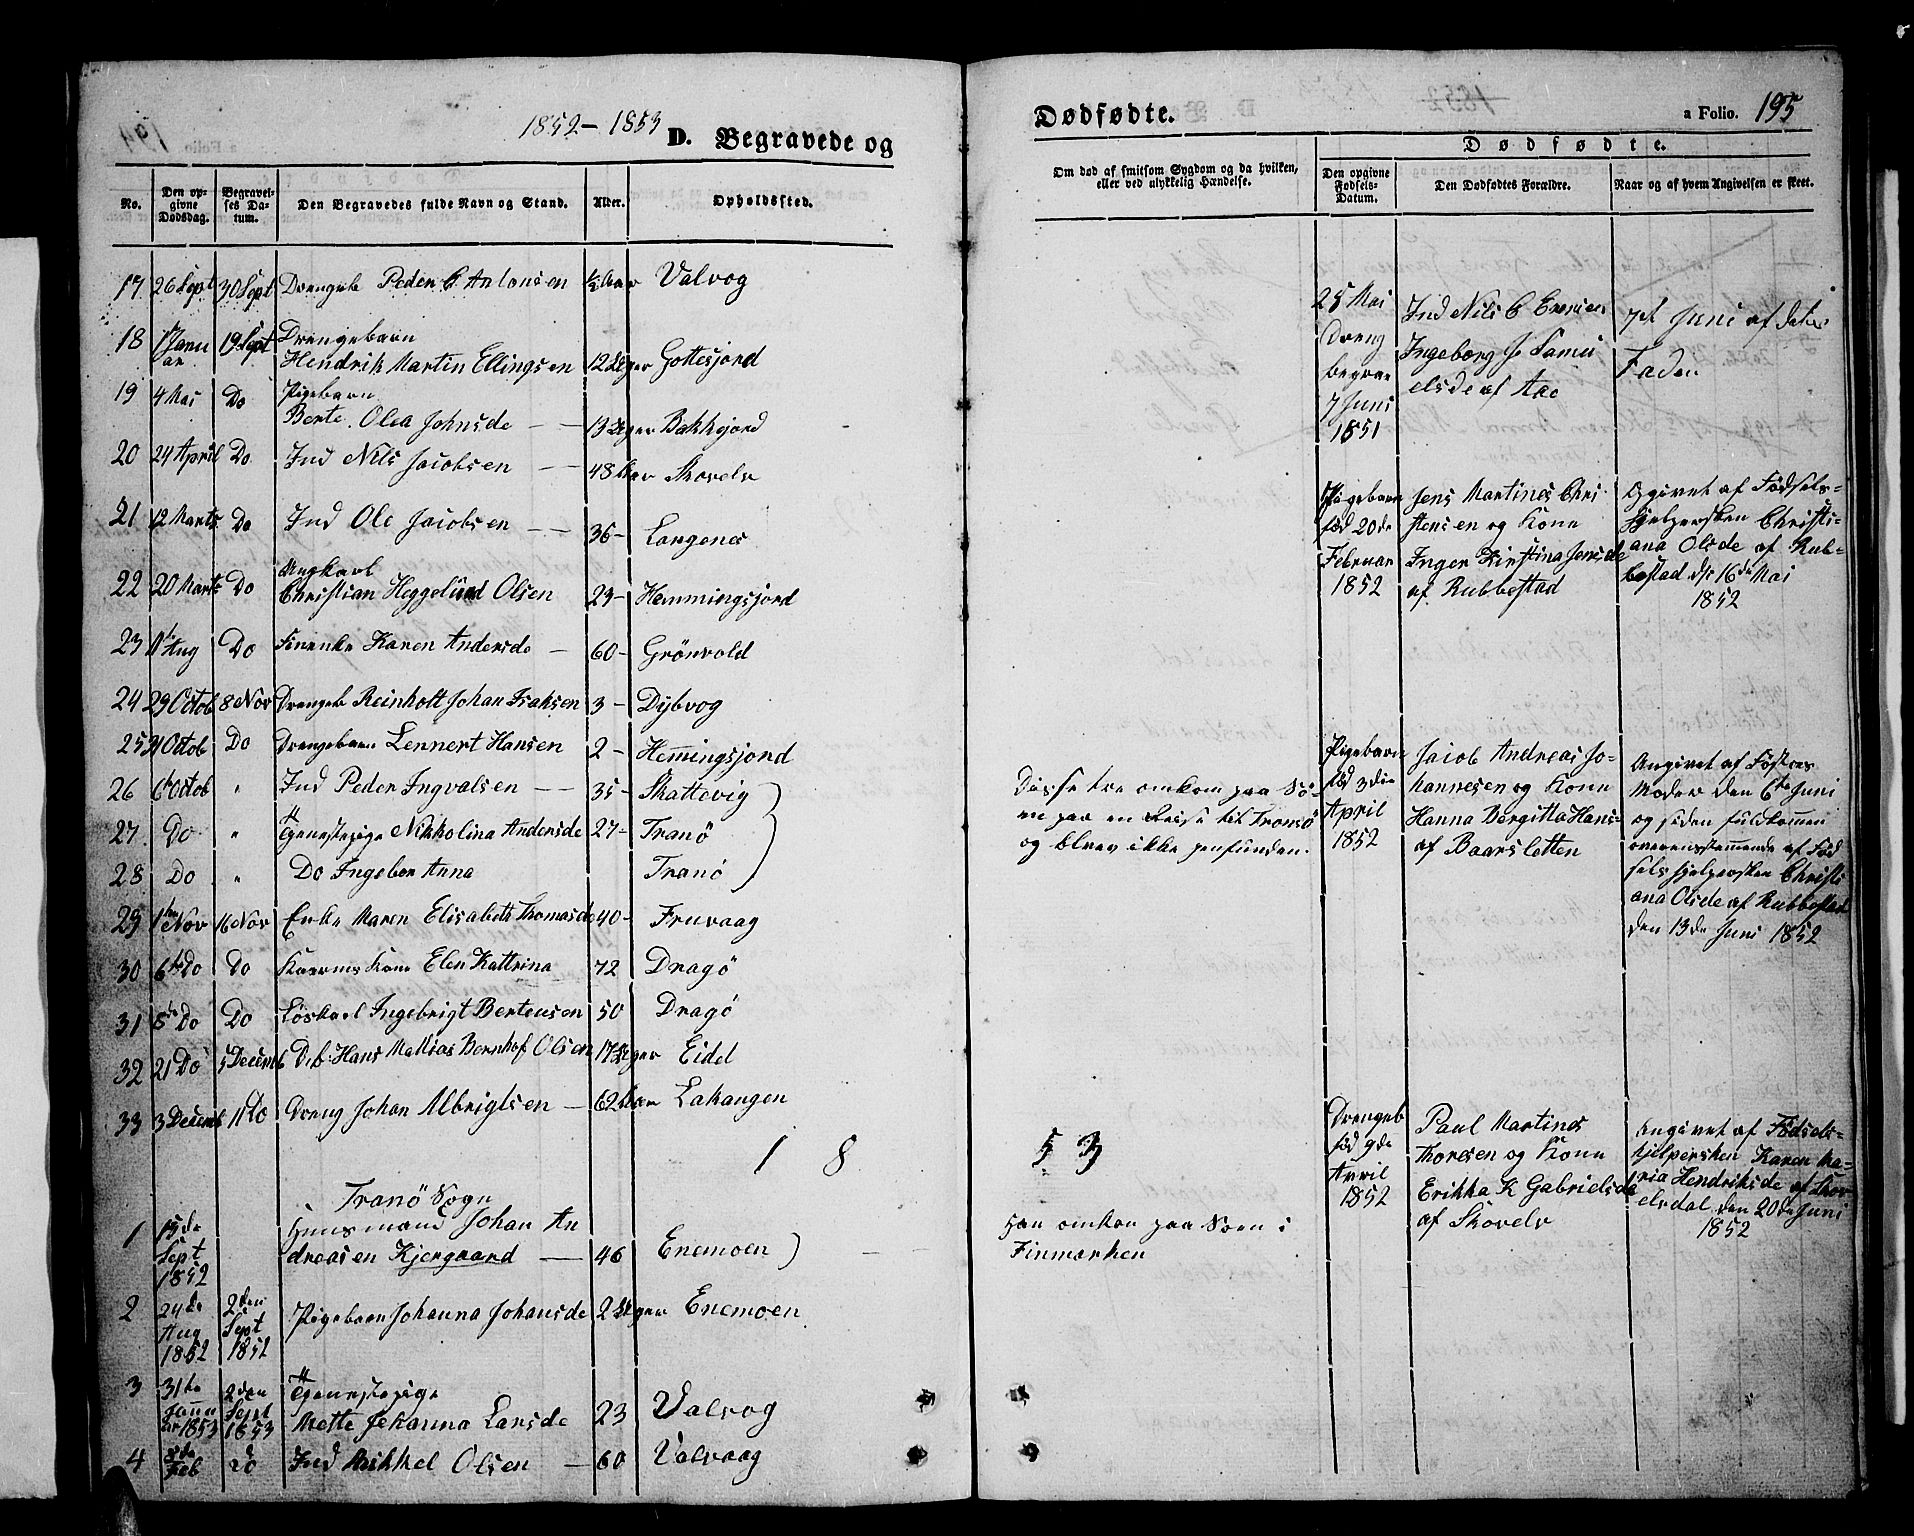 1852 - 1853
D. Begravede og
No.
Den opgivne Dødsdag.
Begravelses Datum.
Den Begravedes fulde Navn og Stand.
Alder.
Opholdssted.
17 26 Sept 30 Sept Drengeb Peder C Antonsen ½ Aar Valvog
18 1 Januar 19 Sept Drengebarn
Hendrik Martin Ellingsen 12 Uger Gottesjord
19 4 Mai Do Pigebarn
Berte Olea Johnsde 13 Uger Bakkejord
20 24 April Do Ind Nils Jacobsen 48 Aar Skovelv
21 12 Marts Do Ind Ole Jacobsen 36 - Langenes
22 20 Marts Do Ungkarl
Christian Heggelund Olsen 23 - Hemmingsjord
23 1te Aug Do Karen Andersde 60 - Grönvold
24 29 Octob 8 Nov Drengeb Reinholt Johan Isaksen 3 - Dybvog
25 31 Octob Do Drengebarn Lennert Hansen 2 - Hemingsjord
26 6te Octob " Ind Peder Ingvalsen 35 - Skattevig
27 Do " Tjenestepige Nikkolina Andersde 27 - Tranö
28 Do " Do Ingebor Anna Tranö
29 1te Nov 16 Nov Enke Maren Elisabeth Thomasde 40 - Fruvaag
30 6te Do Do Kone Elen Kattrina 72 Dragö
31 5te Do Do Løskarl Ingebrigt Berteusen 50 Dragö
32 21 Do 5 Decemb D.b. Hans Mathias Bernhof Olsen 17 Uger Eidd
33 3 Decemb 11 Do Dreng Johan Albrigtsen 62 Aar Lakangen
1 8
Tranö Sogn
1 15de Sept 1852 Huusmand Johan Andreasen Kjergaard 46 Enemoen
2 24de Aug 1852 2den Sept 1852 Pigebarn Johanna Johansde 2 Uger Enemoen
3 31te Januar 1853 2den Sept 1853 Tjenestepige
Mette Johanna Larsde 23 Valvog
4 8de Feb Do Ind Mikkel Olsen 60 Valvaag
Dødfødte.
a Folio. 195
Om død af smitsom Sygdom og da hvilken,
eller ved ulykkelig Hændelse.
Dødfødte.
Den opgivne Fødsels-Datum.
Den Dødfødtes Forældre.
Naar og af hvem Angivelsen er skeet.
25 Mai
Dreng
begrav
7 Juni
1851
Ind Nils C
Ingeborg J Samu
elsde af Aae
7de Juni af dets
Fader
Pigebarn
fød 20de
Februar
1852
Jens Martines Chri
stensen og Kone
Inger Kirstina Jensde
af Rubbestad
Opgivet af Fødsels-
hjelpersken Christi-
ana Olsde af Rub-
bestad d: 16de Mai
1852
Disse tre omkom paa Sö-
en paa en Reise til Tromsö
og blev ikke jenfunden.
Pigebarn
fød 3die
April
1852
Jacob Andreas Jo-
hannesen og Kone
Hanna Bergitta Hans-
af Baarsletten
Angivet af
Moder den 6te Juni
og siden fuldkommen
overensstemmende af Fød
selshjelpersken Christi
ana Olsde af Rubbestad
den 13de Juni 1852
5 3
Drengeb
fød 9de
April
1852
Paul Martines
Thoresen og Kone
Erikka K Gabrielsde
af Skovelv
Angivet af Fødsels-
hjelpersken Karen Ma-
ria Hendriksde af Skov
elsdal den 20de Juni
1852
Han omkom paa Soen i
Finmarken